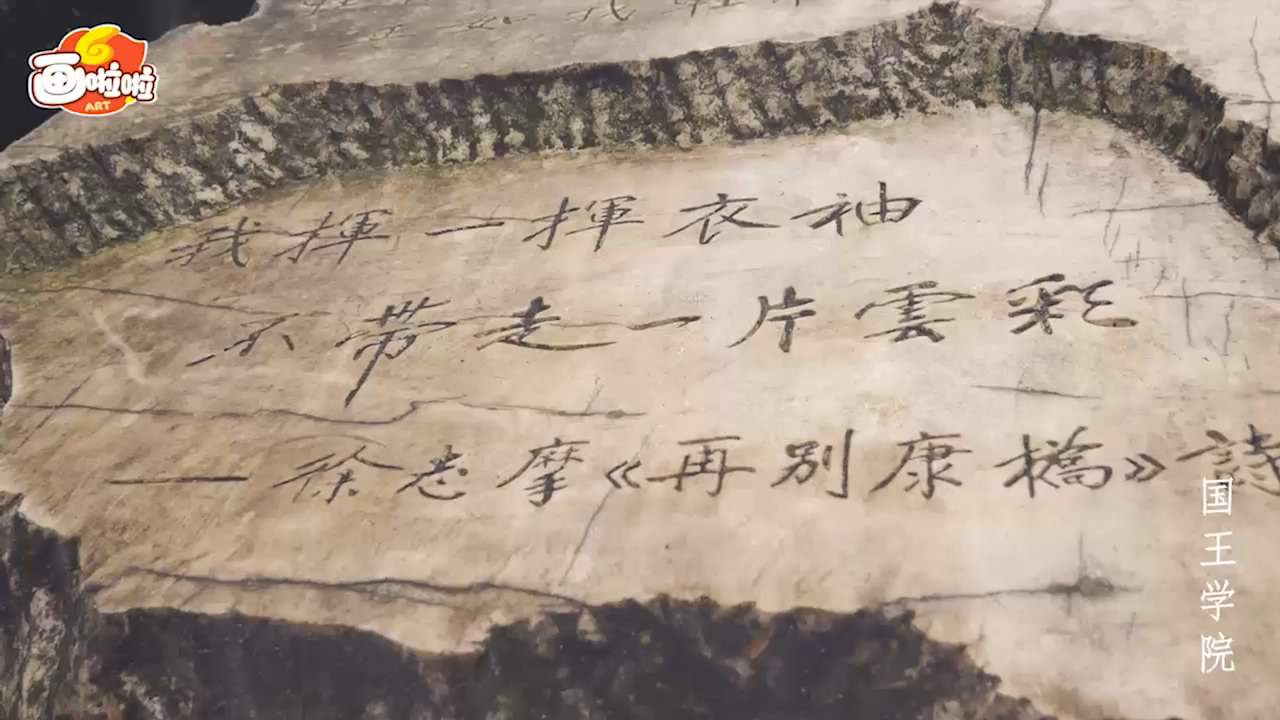 画啦啦
ART
我揮一揮衣袖
不带走一片雲彩
一徐志摩《再别康橋》詩
国王学院